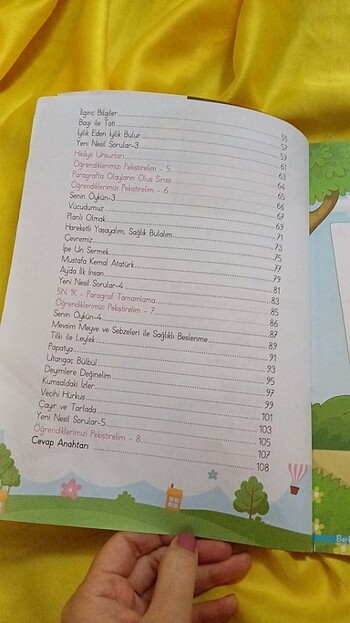 İlginç Bilgiler 55
Bagi ile Tati 57
İyilik Eden İyilik Bulur 59
Yeni Nesil Sorular-3 61
Hikâye Unsurları 63
Öğrendiklerimizi Pekiştirelim - 5 64
Paragrafta Olayların Oluş Sırası 65
Öğrendiklerimizi Pekiştirelim - 6 66
Senin Öykün-3 67
Vücudumuz 69
Planlı Olmak 71
Hareketli Yaşayalım, Sağlık Bulalım 73
Çevremiz 75
İpe Un Sermek 77
Mustafa Kemal Atatürk 79
Ayda İlk İnsan 81
Yeni Nesil Sorular-4 83
5N 1K - Paragraf Tamamlama 85
Öğrendiklerimizi Pekiştirelim - 7 86
Senin Öykün-4 87
Mevsim Meyve ve Sebzeleri ile Sağlıklı Beslenme 89
Tilki ile Leylek 91
Papatya 93
Utangaç Bülbül 95
Deyimlere Değinelim 97
Kumsaldaki İzler 99
Vecihi Hürkuş 101
Çayır ve Tarlada 103
Yeni Nesil Sorular-5 105
Öğrendiklerimizi Pekiştirelim - 8 107
Cevap Anahtarı 108